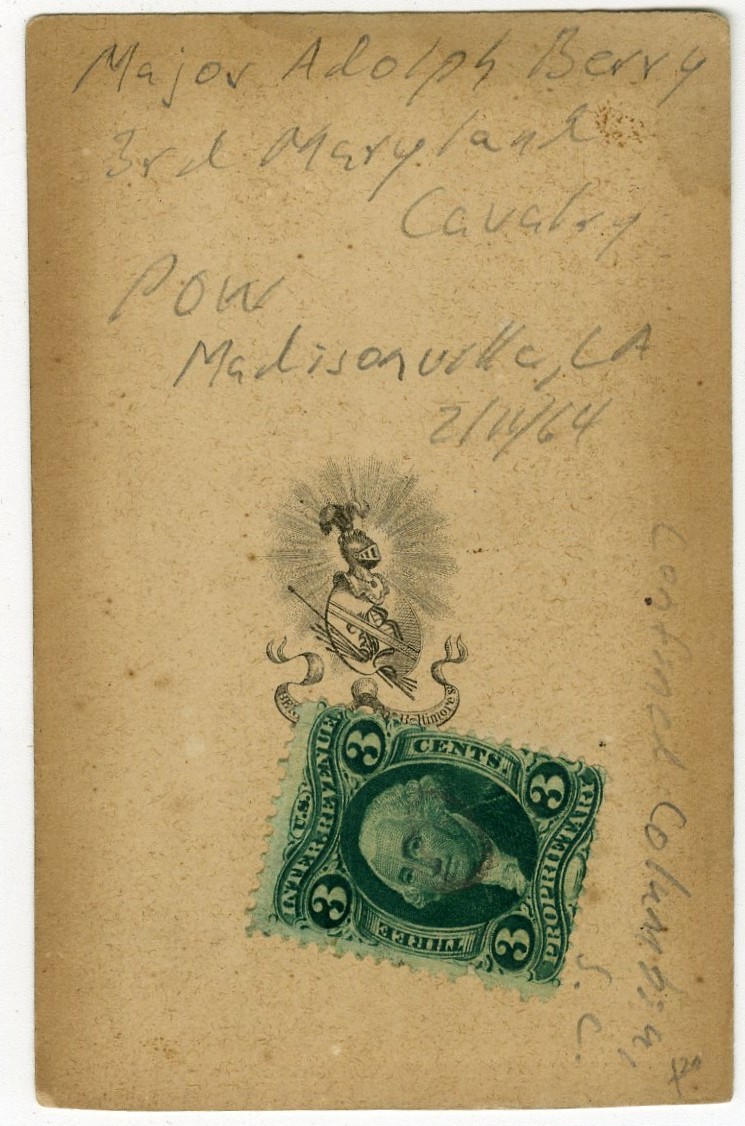 Major Adolph Berry
3rd Maryland
Cavalry
POW
Madisonville, LA
2/11/64
confined Columbia,
S.C.
BEN
Baltimore
U.S.
INTER. REVENUE
PROPRIETARY
CENTS
THREE
3
3
3
3